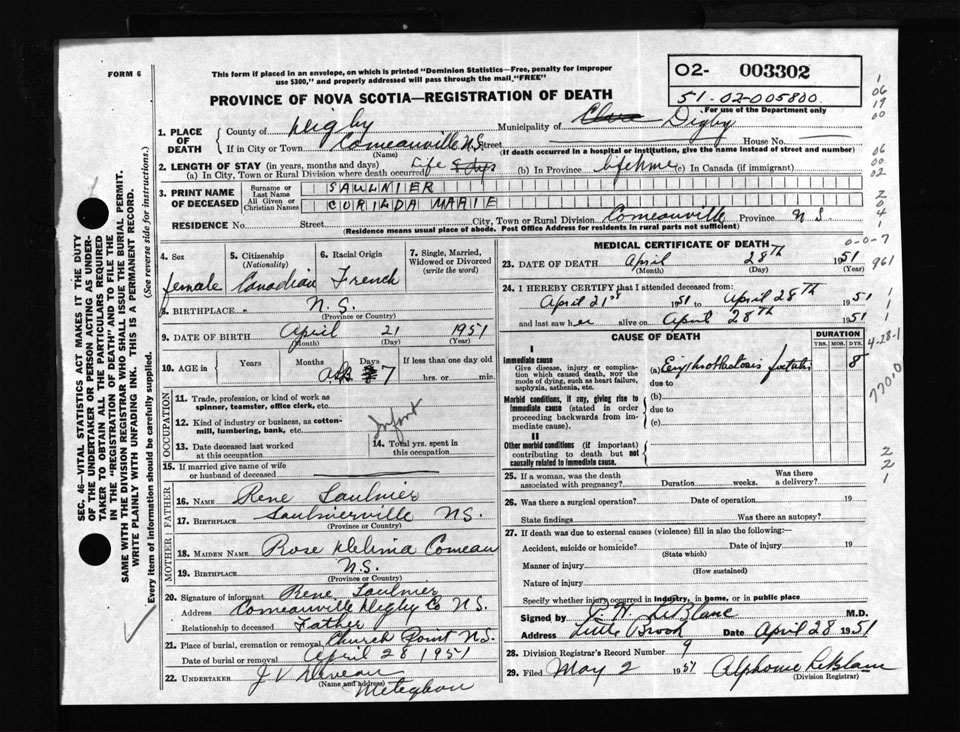 FORM 6
This form if placed in an envelope, on which is printed "Dominion Statistics—Free, penalty for improper
use $300," and properly addressed will pass through the mail, "FREE"
O2- 003302
51-02-005800
For use of the Department only
PROVINCE OF NOVA SCOTIA—REGISTRATION OF DEATH
1. PLACE OF DEATH
County of Digby Municipality of Clare Digby
If in City or Town Comeauville N.S. Street House No.
(Name) (If death occurred in a hospital or institution, give the name instead of street and number)
2. LENGTH OF STAY (in years, months and days)
(a) In City, Town or Rural Division where death occurred life 8 dys (b) In Province lifetime (c) In Canada (if immigrant)
3. PRINT NAME OF DECEASED
Surname or Last Name SAULNIER
All Given or Christian Names CORINDA MARIE
RESIDENCE No. Street City, Town or Rural Division Comeauville Province N S.
(Residence means usual place of abode. Post Office Address for residents in rural parts not sufficient)
4. Sex female
5. Citizenship (Nationality) Canadian
6. Racial Origin French
7. Single, Married, Widowed or Divorced (write the word)
8. BIRTHPLACE N.S.
(Province or Country)
9. DATE OF BIRTH April 21 1951
(Month) (Day) (Year)
10. AGE in Years Months Days 7 If less than one day old
hrs. or min.
OCCUPATION
11. Trade, profession, or kind of work as
spinner, teamster, office clerk, etc.
12. Kind of industry or business, as cotton-
mill, lumbering, bank, etc.
Infant
13. Date deceased last worked
at this occupation
14. Total yrs. spent in
this occupation
15. If married give name of wife
or husband of deceased
FATHER
16. NAME Rene Saulnier
17. BIRTHPLACE Saulnierville N.S.
(Province or Country)
MOTHER
18. MAIDEN NAME Rose Delima Comeau
19. BIRTHPLACE N.S.
(Province or Country)
20. Signature of informant Rene Saulnier
Address Comeauville Digby Co N.S.
Relationship to deceased Father
21. Place of burial, cremation or removal Church Point N.S.
Date of burial or removal April 28 1951
22. UNDERTAKER J V Deveau
(Name and address) Meteghan
MEDICAL CERTIFICATE OF DEATH
23. DATE OF DEATH April 28TH 1951
(Month) (Day) (Year)
24. I HEREBY CERTIFY that I attended deceased from:
April 21st 1951 to April 28TH 1951
and last saw her alive on April 28TH 1951
CAUSE OF DEATH DURATION
YRS. MOS. DYS.
I
Immediate cause
Give disease, injury or complica-
tion which caused death, NOT the
mode of dying, such as heart failure,
asphyxia, asthenia, etc.
(a) Erythroblastosis foetalis 8
due to
Morbid conditions, if any, giving rise to
immediate cause (stated in order
proceeding backwards from im-
mediate cause).
(b)
due to
(c)
II
Other morbid conditions (if important)
contributing to death but not
causally related to immediate cause.
25. If a woman, was the death
associated with pregnancy? Duration weeks. Was there
a delivery?
26. Was there a surgical operation? Date of operation 19
State findings Was there an autopsy?
27. If death was due to external causes (violence) fill in also the following:—
Accident, suicide or homicide? Date of injury 19
(State which)
Manner of injury
(How sustained)
Nature of injury
Specify whether injury occurred in industry, in home, or in public place
Signed by P. W. LeBlanc M.D.
Address Little Brook Date April 28 1951
28. Division Registrar's Record Number 9
29. Filed May 2 1951 Alphonse LeBlanc
(Division Registrar)
SEC. 46—VITAL STATISTICS ACT MAKES IT THE DUTY
OF THE UNDERTAKER OR PERSON ACTING AS UNDER-
TAKER TO OBTAIN ALL THE PARTICULARS REQUIRED
IN THE "REGISTRATION OF DEATH" AND TO FILE THE
SAME WITH THE DIVISION REGISTRAR WHO SHALL ISSUE THE BURIAL PERMIT.
WRITE PLAINLY WITH UNFADING INK. THIS IS A PERMANENT RECORD.
Every item of information should be carefully supplied. (See reverse side for instructions.)
1
06
17
00
06
00
02
2
0
4
1
0-0-7
961
1
1
1
4-28-1
770.0
2
2
1